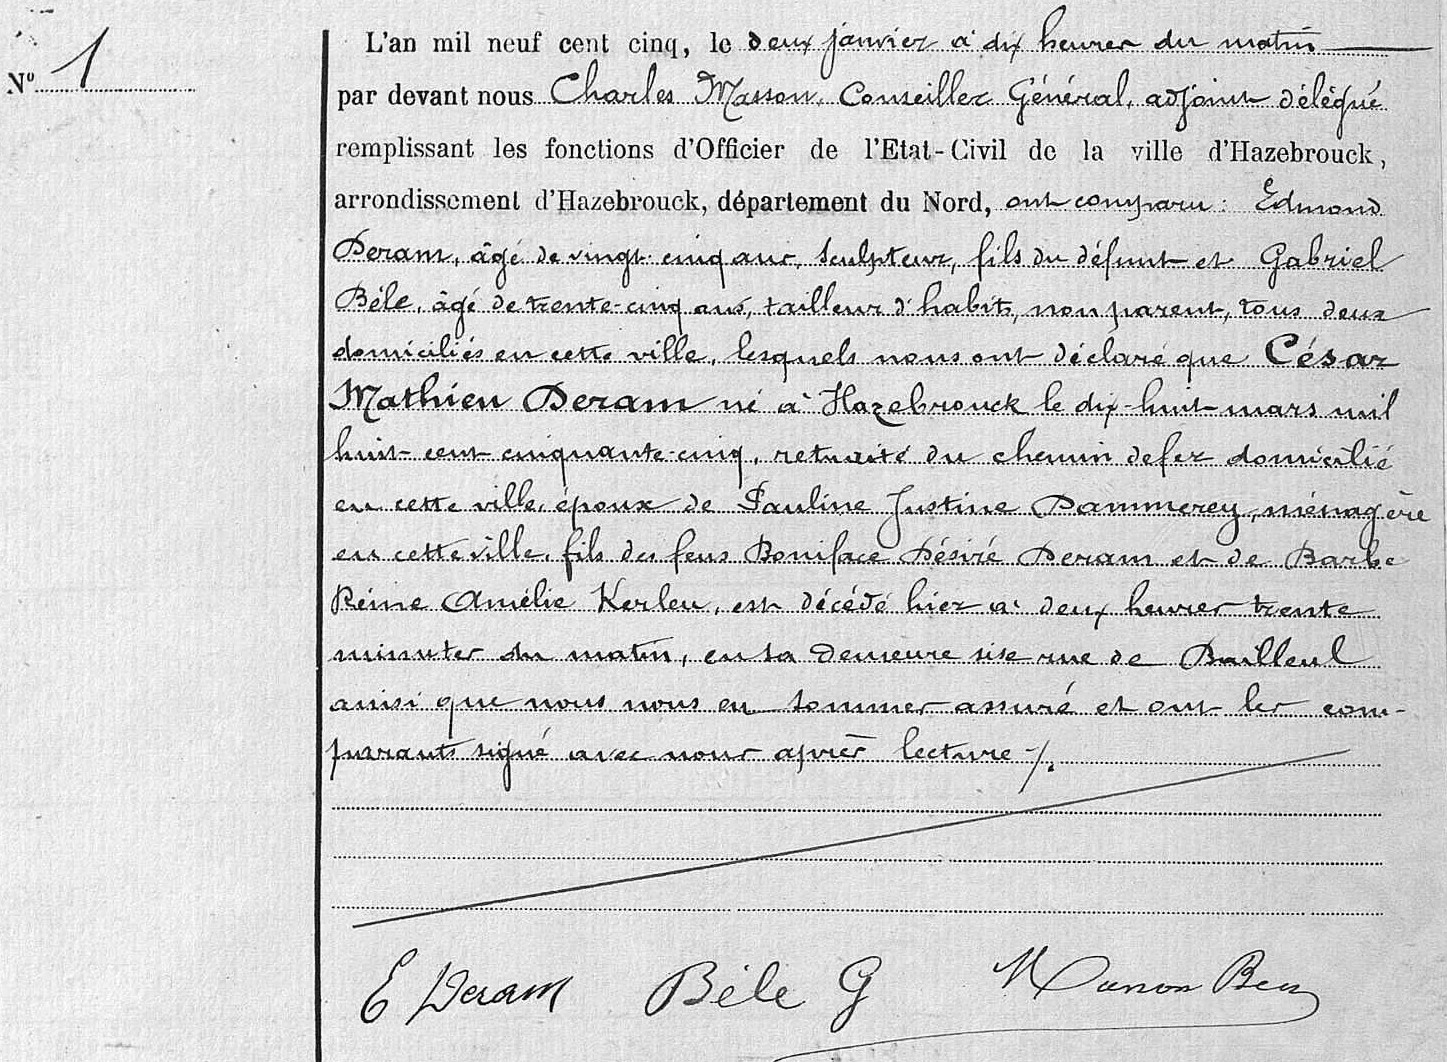 N° 1
L'an mil neuf cent cinq, le deux janvier à dix heures du matin
par devant nous Charles Masson, Conseiller Général, adjoint délégué
remplissant les fonctions d'Officier de l'Etat-Civil de la ville d'Hazebrouck,
arrondissement d'Hazebrouck, département du Nord, ont comparu : Edmond
Deram, âgé de vingt-cinq ans, sculpteur, fils du défunt et Gabriel
Béle, âgé de trente-cinq ans, tailleur d'habits, non parent, tous deux
domiciliés en cette ville, lesquels nous ont déclaré que César
Mathieu Deram né à Hazebrouck le dix-huit mars mil
huit cent cinquante-cinq, retraité du chemin de fer domicilié
en cette ville, époux de Pauline Justine Dammerey, ménagère
en cette ville, fils des feus Boniface Désiré Deram et de Barbe
Reine Amélie Kerleu, est décédé hier à deux heures trente
minutes du matin, en sa demeure sise rue de Bailleul
ainsi que nous nous en sommes assuré et ont les com-
parants signé avec nous après lecture ./.
E Deram Béle G Masson